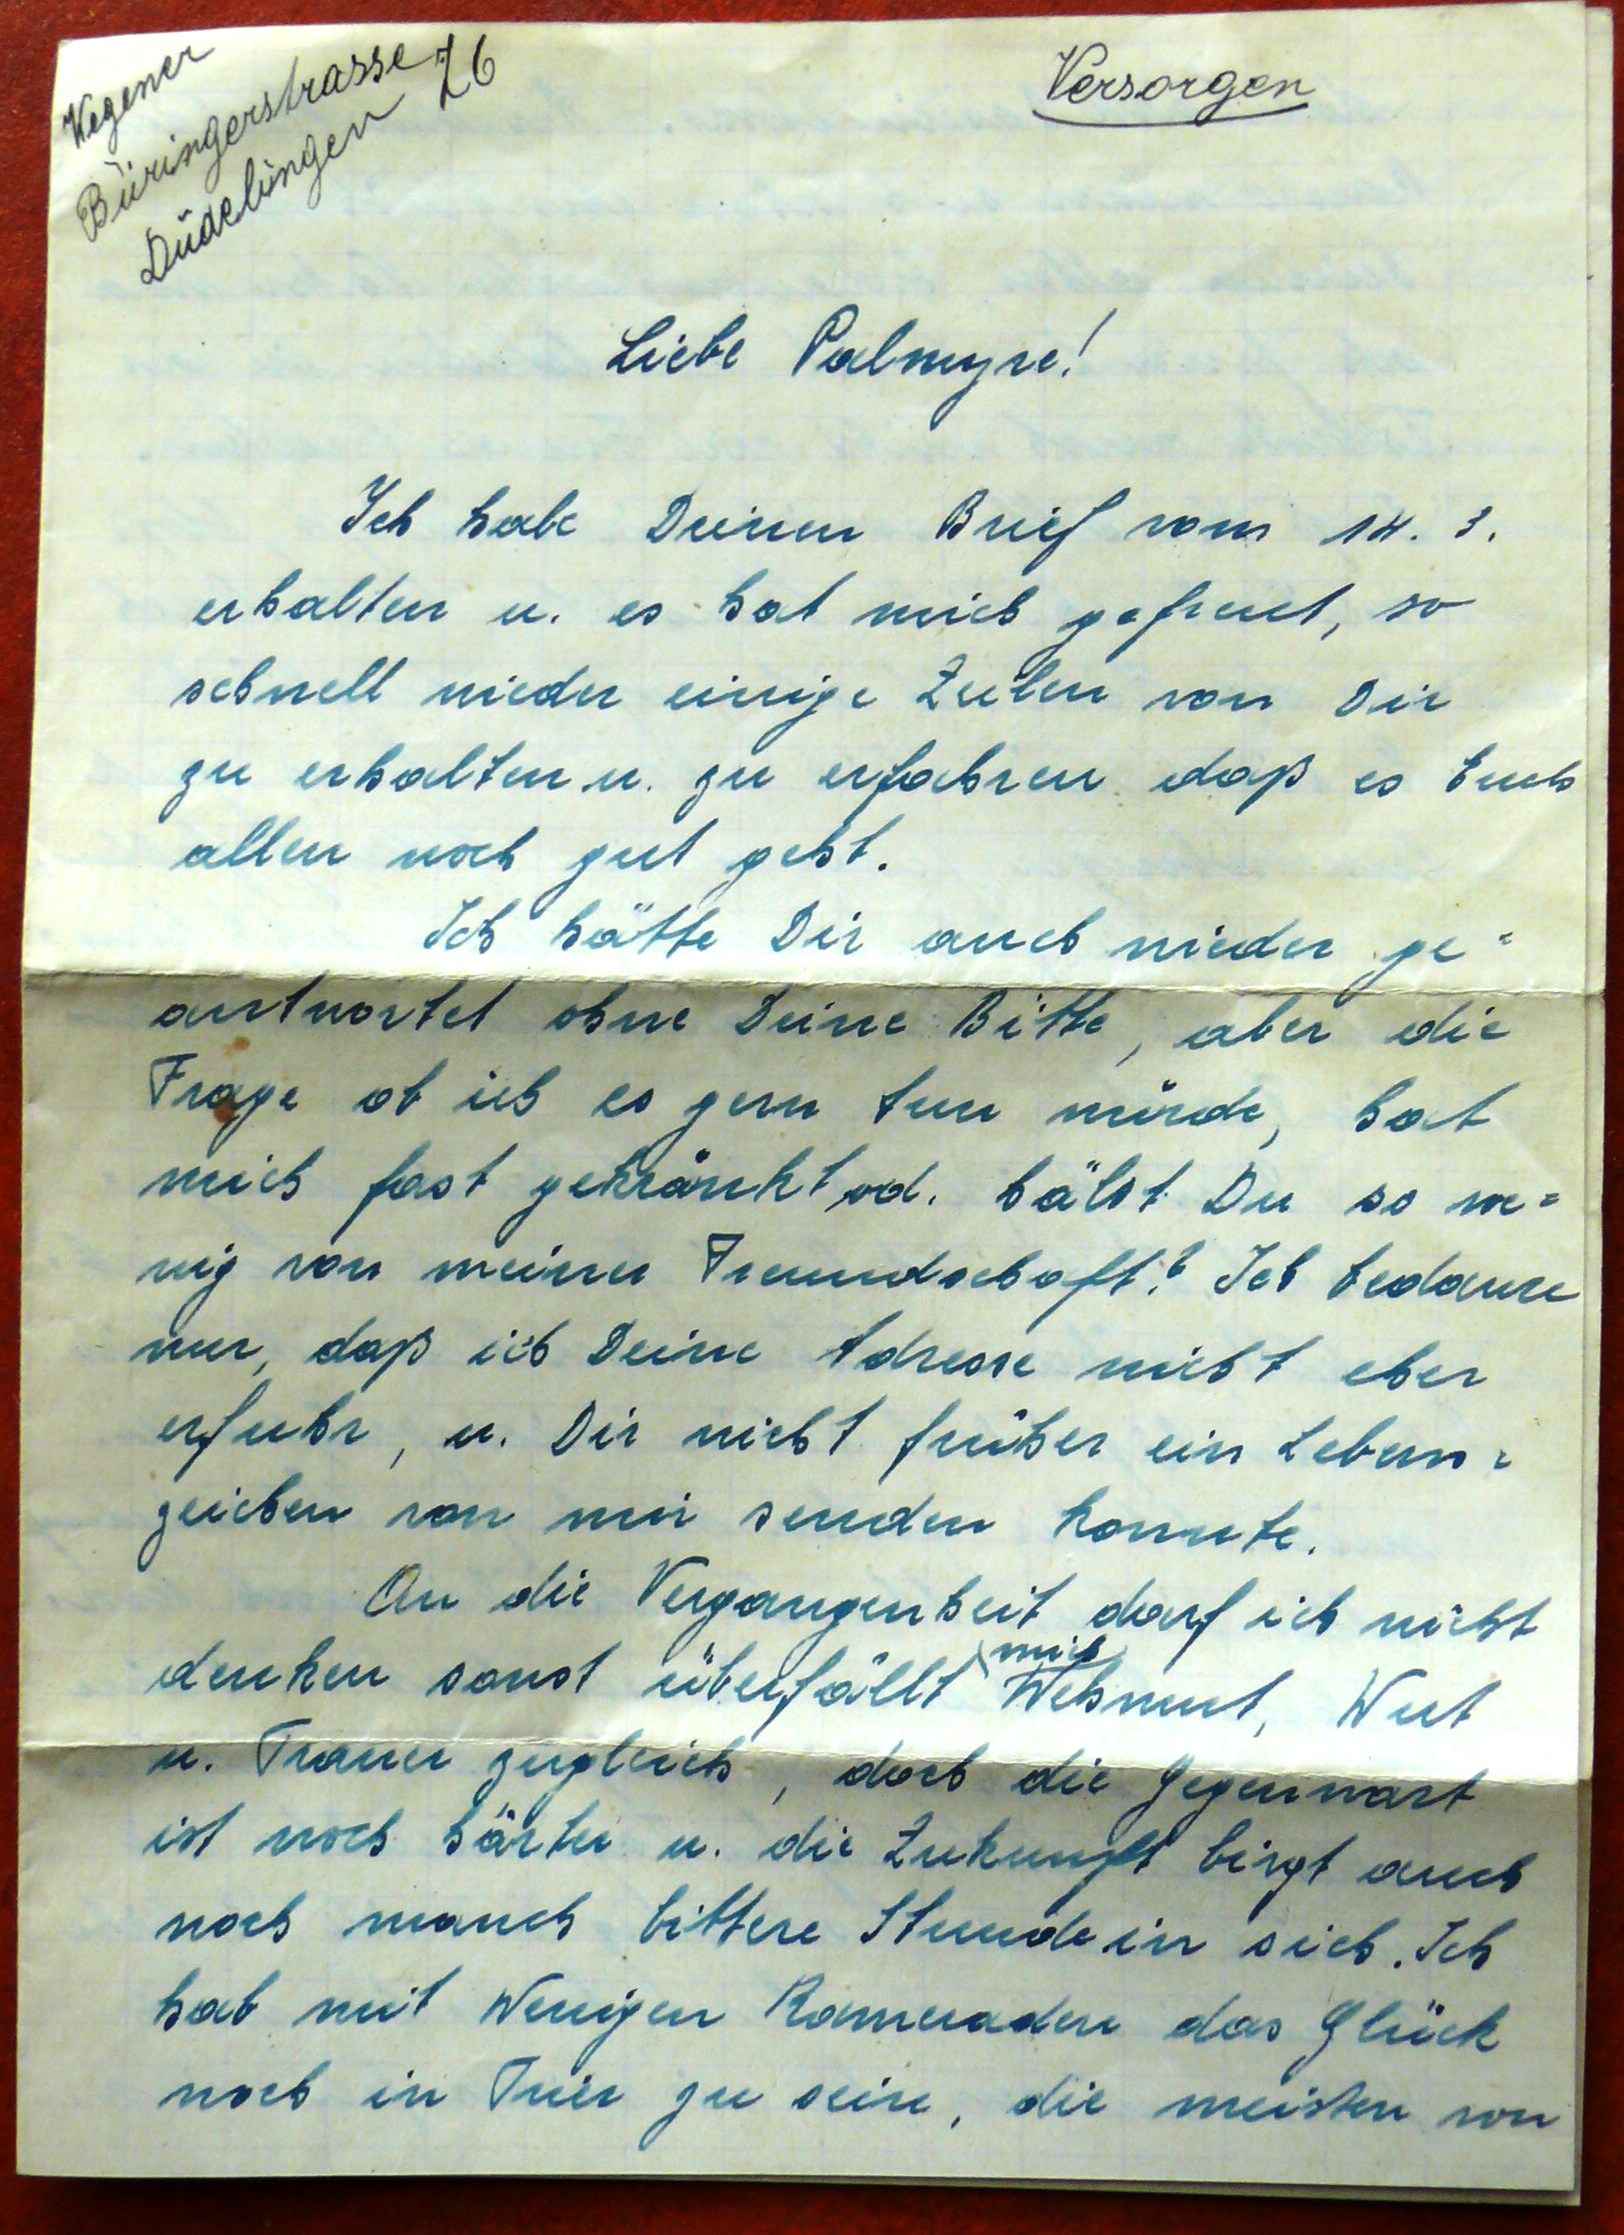 Wegener
Büringerstrasse 26
Düdelingen
Versorgen
Liebe Palmyre!
Ich habe Deinen Brief vom 14. 3.
erhalten u. es hat mich gefreut, so
schnell wieder einige Zeilen von Dir
zu erhalten u. zu erfahren daß es Euch
allen noch gut geht.
Ich hätte Dir auch wieder ge=
antwortet ohne Deine Bitte, aber die
Frage ob ich es gern tun würde, hat
mich fast gekränkt od. hälst Du so we=
nig von meiner Freundschaft? Ich bedaure
nur, daß ich Deine Adresse nicht eher
erfuhr, u. Dir nicht früher ein Leben=
zeichen von mir senden konnte.
An die Vergangenheit darf ich nicht
denken sonst überfällt mich Wehmut, Wut
u. Trauer zugleich, doch die Gegenwart
ist noch härter u. die Zukunft birgt auch
noch manch bittere Stunde in sich. Ich
hab mit Wenigen Kameraden das Glück
noch in Trier zu sein, die meisten von